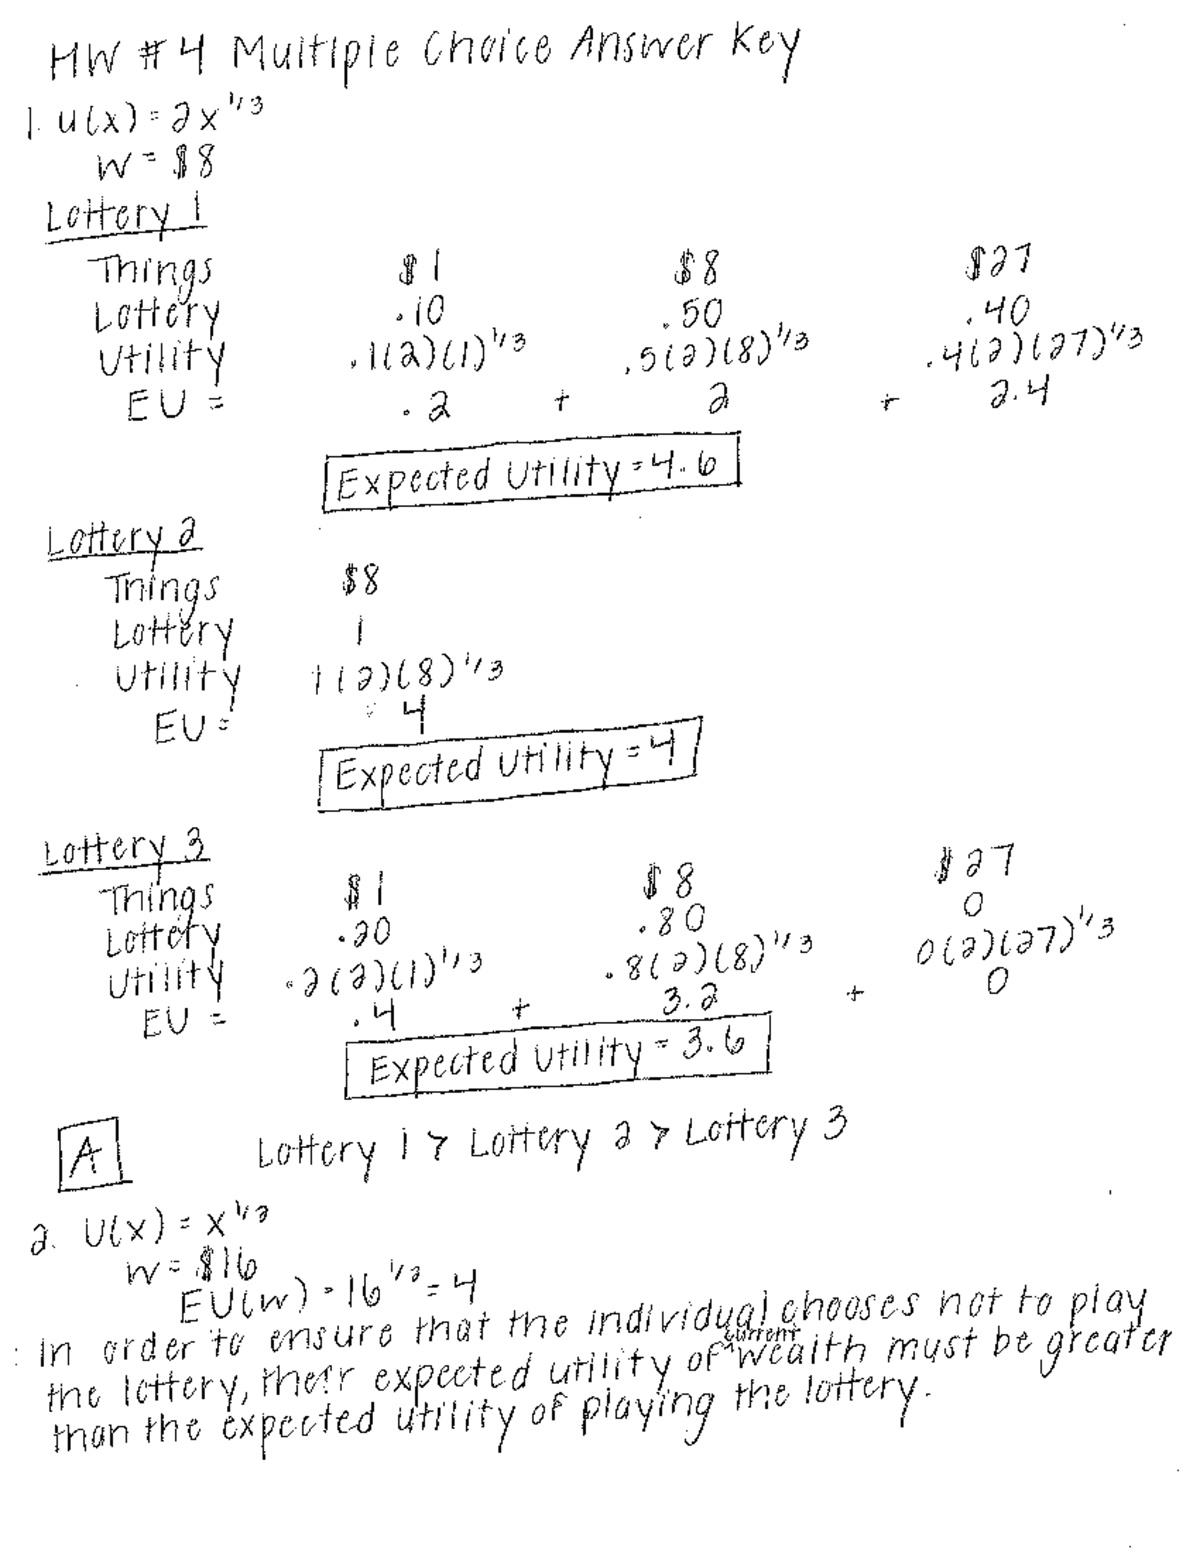 HW #4 Multiple Choice Answer Key
1. u(x) = 2x^1/3
W = $8
Lottery 1
Things $1 $8 $27
Lottery .10 .50 .40
Utility .1(2)(1)^1/3 .5(2)(8)^1/3 .4(2)(27)^1/3
EU = .2 + 2 + 2.4
Expected Utility = 4.6
Lottery 2
Things $8
Lottery 1
Utility 1(2)(8)^1/3
EU = 4
Expected Utility = 4
Lottery 3
Things $1 $8 $27
Lottery .20 .80 0
Utility .2(2)(1)^1/3 .8(2)(8)^1/3 0(2)(27)^1/3
EU = .4 + 3.2 + 0
Expected Utility = 3.6
A Lottery 1 > Lottery 2 > Lottery 3
2. U(x) = x^1/2
W = $16
EU(w) = 16^1/2 = 4
In order to ensure that the individual chooses not to play
the lottery, their expected utility of current wealth must be greater
than the expected utility of playing the lottery.